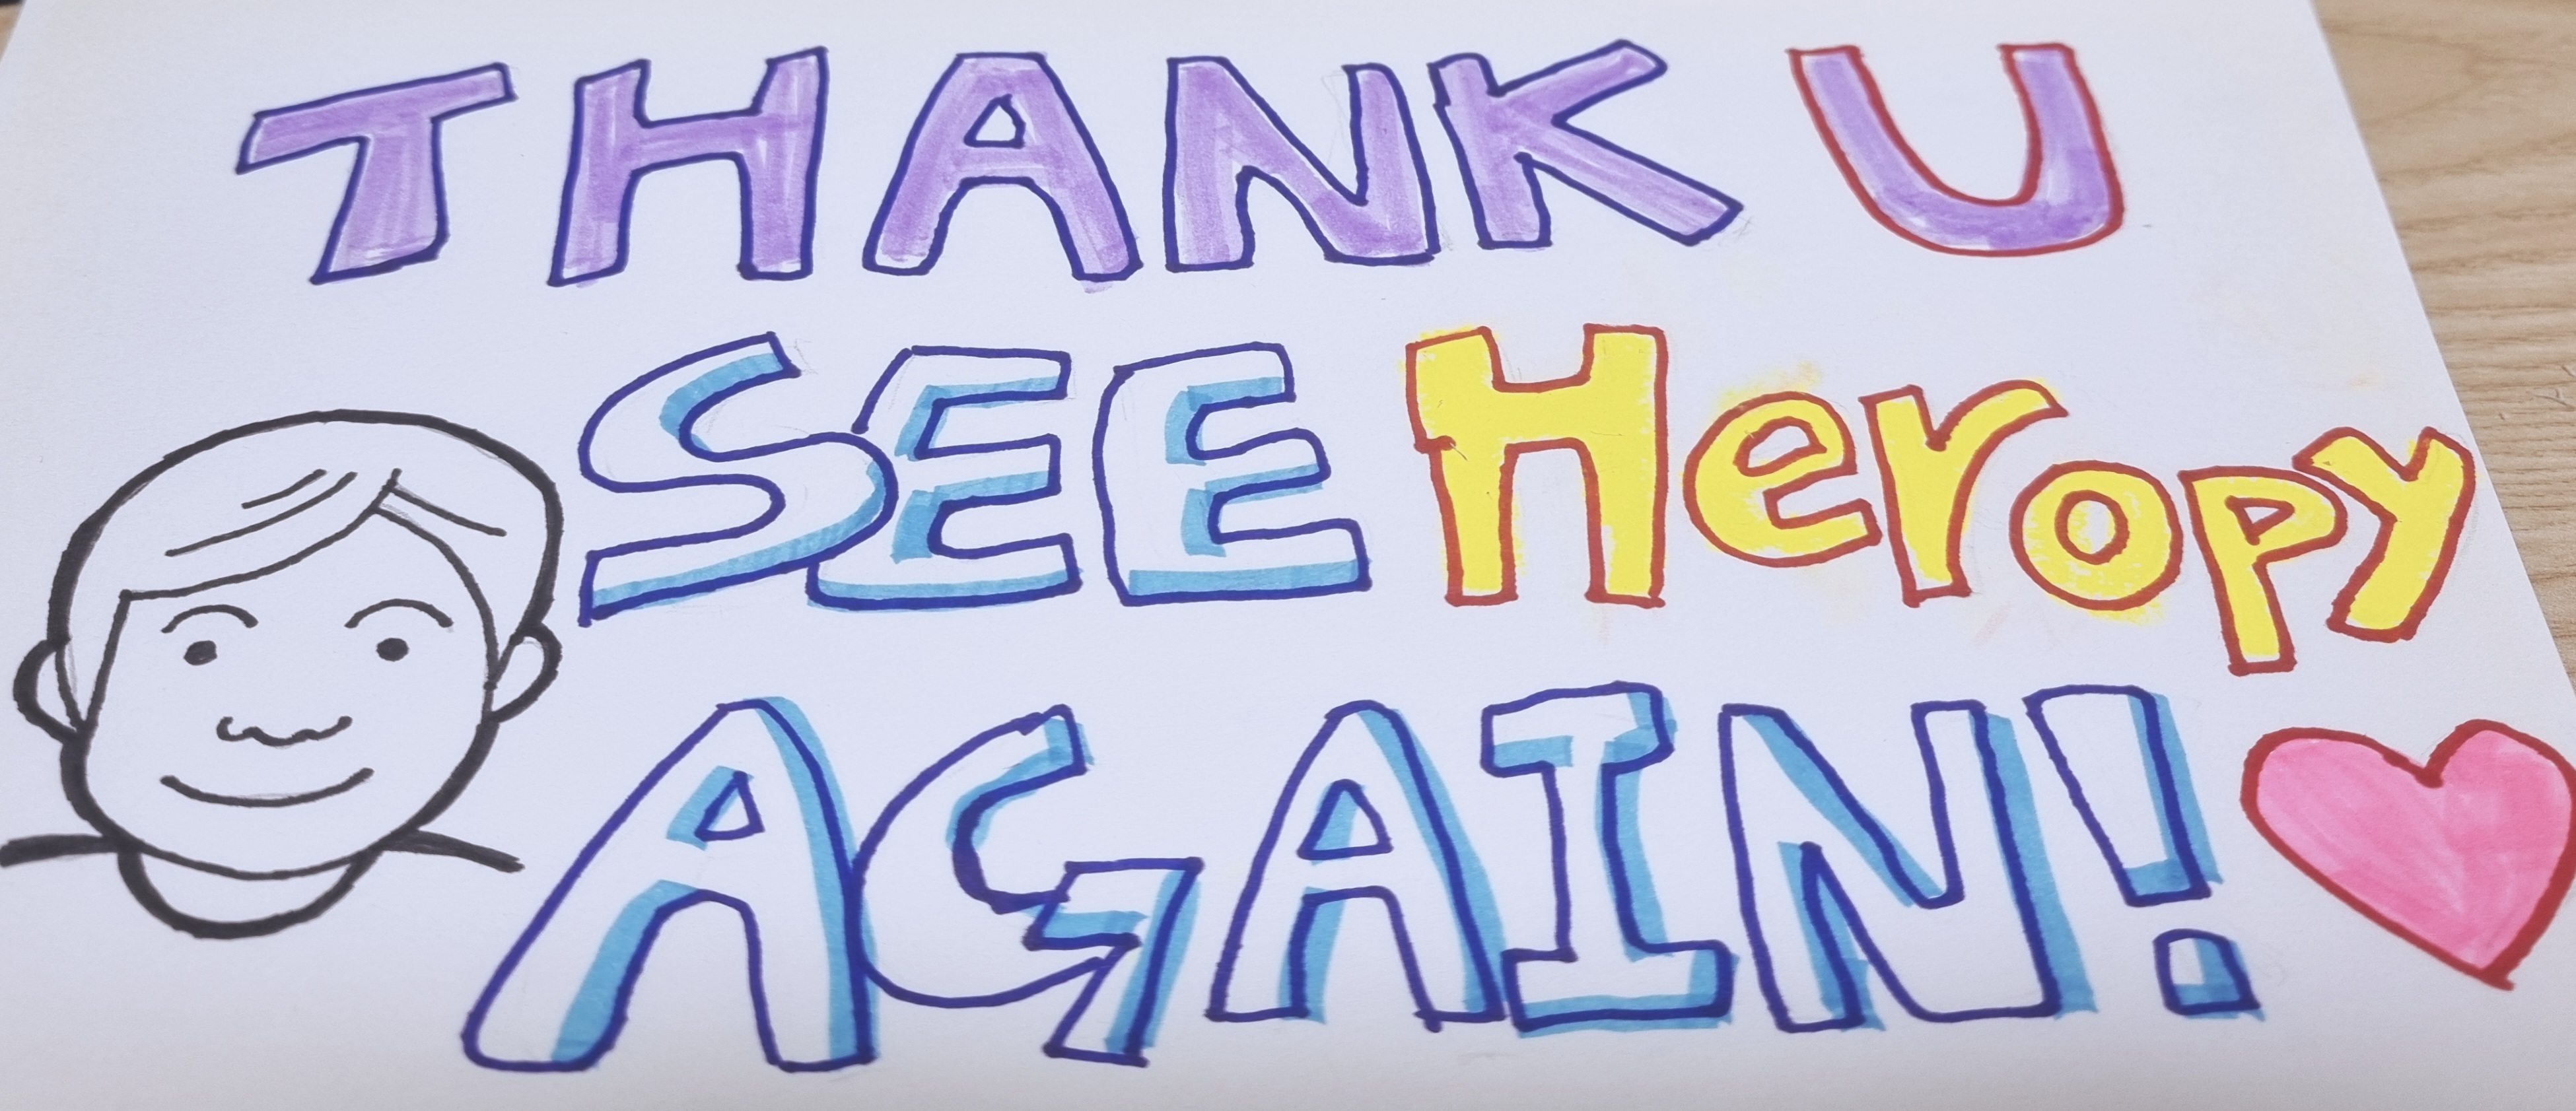 THANK U
SEE Heropy
AGAIN!